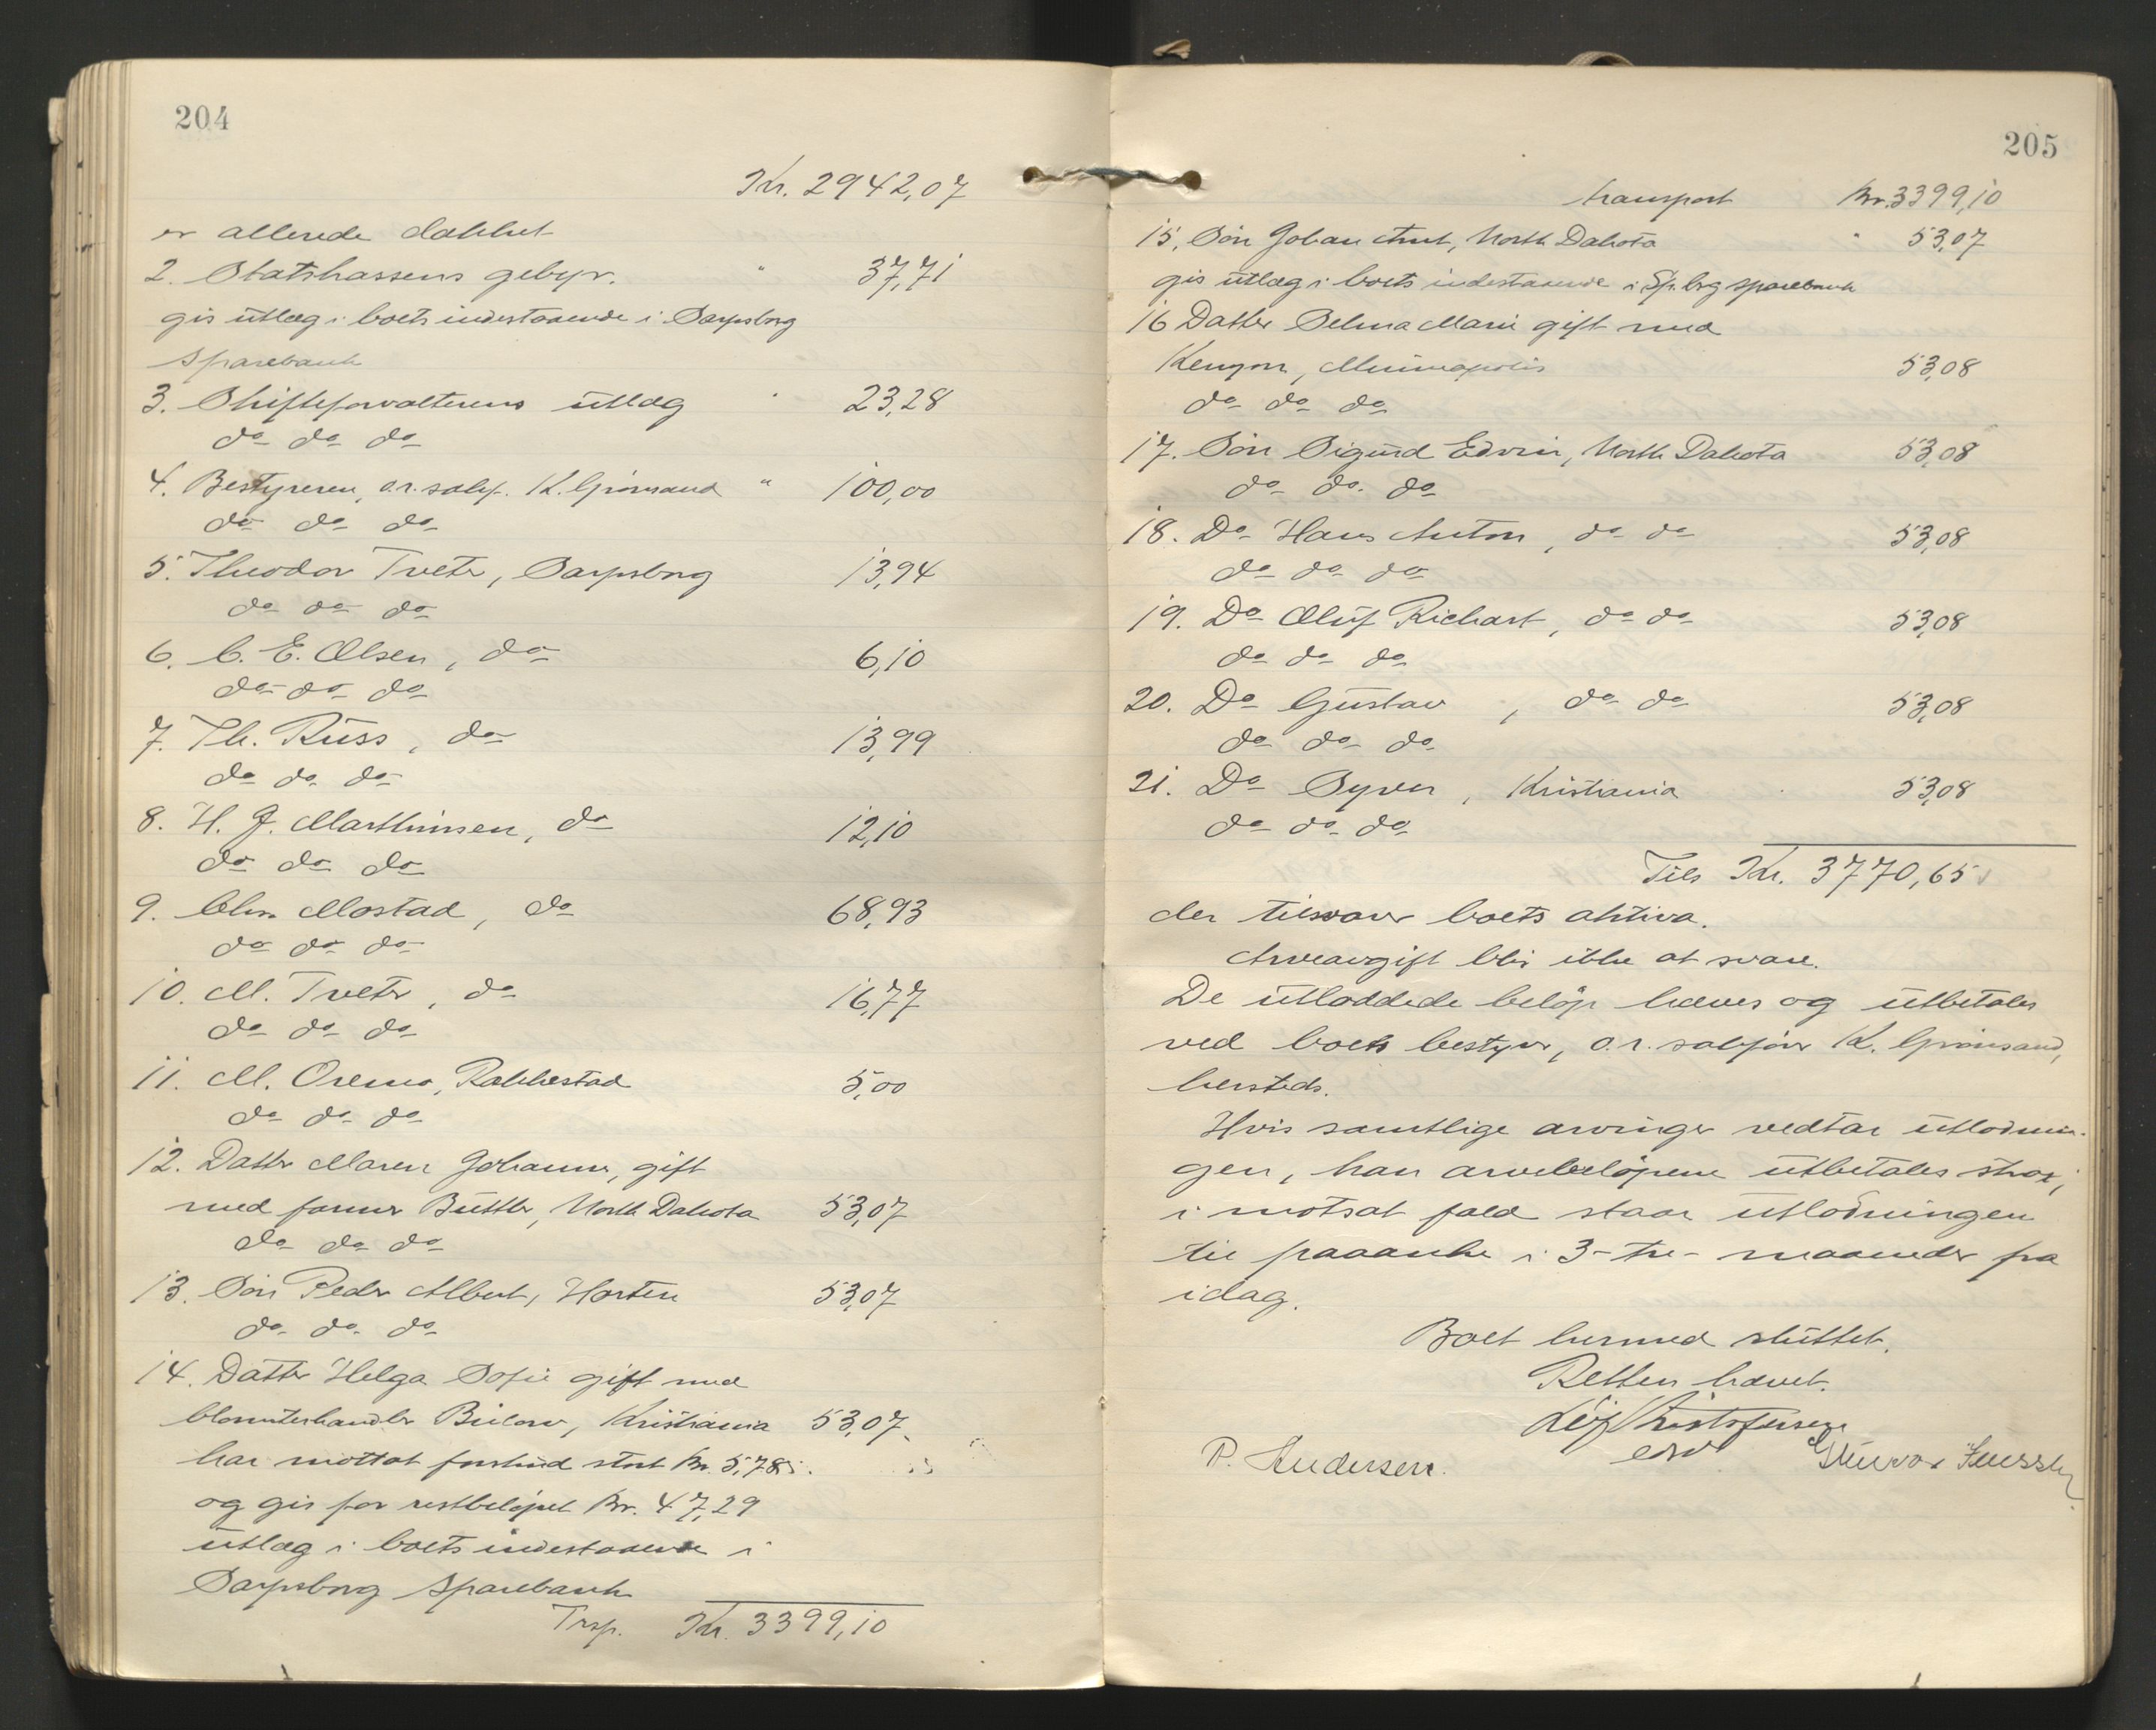 204
Kr. 2942,07
er allerede dækket
2. Statskassens gebyr. " 37,71
gis utlæg i boets indestaaende i Sarpsborg
Sparebank
3. Skifteforvalterens utlæg " 23,28
do do do
4. Bestyreren, o.r.sakf. K. Grimsand " 100,00
do do do
5. Theodor Tveter, Sarpsborg 13,94
do do do
6. C. E. Olsen, do 6,10
do do do
7. Th. Russ, do 13,99
do do do
8. H. J. Marthinsen, do 12,10
do do do
9. Chr. Mostad, do 68,93
do do do
10. M. Tveter, do 16,77
do do do
11. M. Oremo, Rakkestad 5,00
do do do
12. Datter Maren Johanne, gift
med farmer Buttler, North Dakota 53,07
do do do
13. Søn Peder Albert, Horten 53,07
do do do
14. Datter Helga Sofie gift med
blomsterhandler Bülow, Kristiania 53,07
har mottat forskud stort kr. 5,78
og gis for restbeløpet kr. 47,29
utlæg i boets indestaaende i
Sarpsborg Sparebank
Trsp. Kr. 3399,10
205
transport kr. 3399,10
15. Søn Johan Arnt, North Dakota " 53,07
gis utlæg i boets indestaaende i Sp.brg sparebank
16 Datter Selma Marie gift med
Kenyon, Minneapolis 53,08
do do do
17. Søn Sigurd Edvin, North Dakota 53,08
do do. do
18. Do Hans Anton, do do 53,08
do do do
19. Do Oluf Richart, do do 53,08
do do do
20. Do Gustav, do do 53,08
do do do
21. Do Syver, Kristiania 53,08
do do do
Tils Kr. 3770,65
der tilsvarer boets aktiva.
Arveavgift blir ikke at svare.
De utloddede beløp hæves og utbetales
ved boets bestyrer, o.r.sakfører K. Grimsand,
hersteds.
Hvis samtlige arvinger vedtar utlodnin-
gen, kan arvebeløpene utbetales strax,
i motsat fald staar utlodningen
til paaanke i 3-tre- maaneder fra
idag.
Boet hermed sluttet.
Retten hævet.
Leif Kristofersen
edsv
P. Andersen. Gunvor